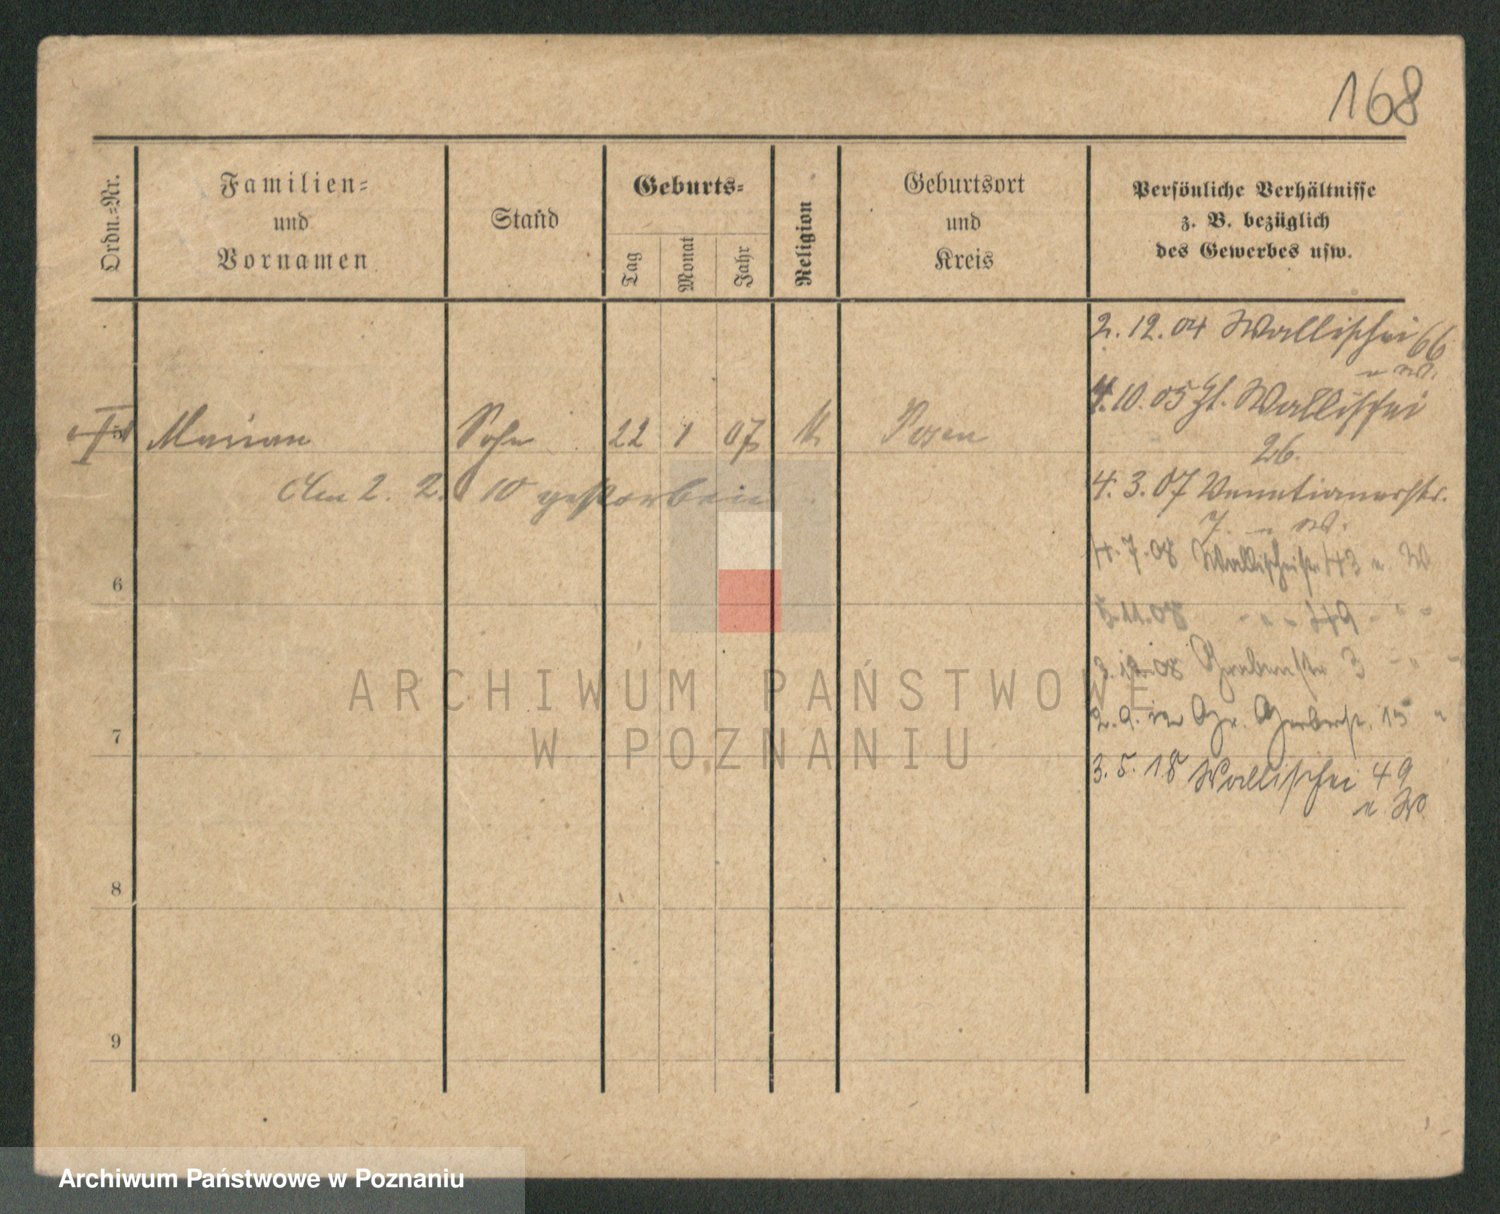 168
Ordn.-Nr.
Familien-
und
Vornamen
Stand
Geburts-
Tag
Monat
Jahr
Religion
Geburtsort
und
Kreis
Persönliche Verhältnisse
z. B. bezüglich
des Gewerbes usw.
2. 12. 04 Wallischei 66
u W.
4. 10. 05 Wallischei
26.
5 Marian Sohn 22 1 07 k Posen
Am 2. 2. 10 gestorben
4. 3. 07 Venetianerstr.
7 u W.
4. 7. 08 Wallischeistr 43 u. W
6
5. 11. 08 " " 49 " "
08 Grabenstr 3 " "
2. 9. Gr. Gerberstr. 15 "
7
3. 5. 18 Wallischei 49
u W
8
9
ARCHIWUM PAŃSTWOWE
W POZNANIU
Archiwum Państwowe w Poznaniu